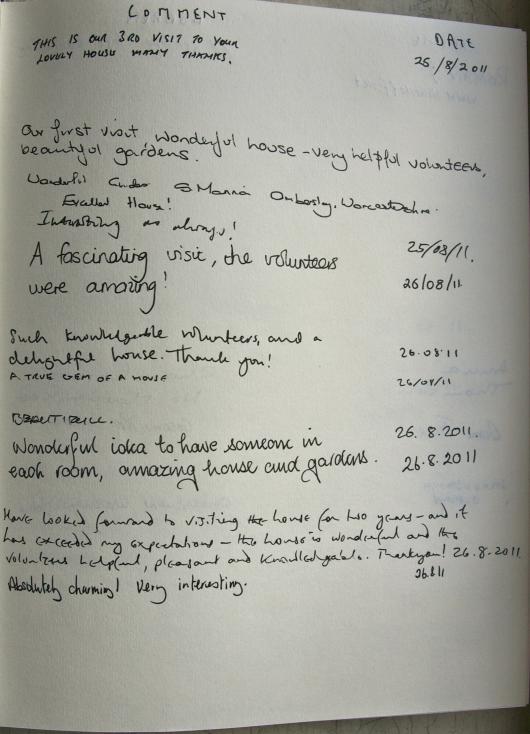 COMMENT DATE
THIS IS OUR 3RD VISIT TO YOUR
LOVELY HOUSE MANY THANKS. 25/8/2011
Our first visit wonderful house - very helpful volunteers,
beautiful gardens.
Wonderful Ombersley, Worcestershire.
Excellent House!
Interesting as always!
A fascinating visit, the volunteers 25/08/11.
were amazing! 26/08/11
Such knowledgeable volunteers, and a
delightful house. Thank you! 26.08.11
A TRUE GEM OF A HOUSE 26/08/11
BEAUTIFULL. 26.8.2011.
Wonderful idea to have someone in
each room, amazing house and gardens. 26.8.2011
Have looked forward to visiting the house for two years - and it
has exceeded my expectations - the house is wonderful and the
volunteers helpful, pleasant and knowledgeable. Thankyou! 26.8.2011
Absolutely charming! Very interesting. 26.8.11